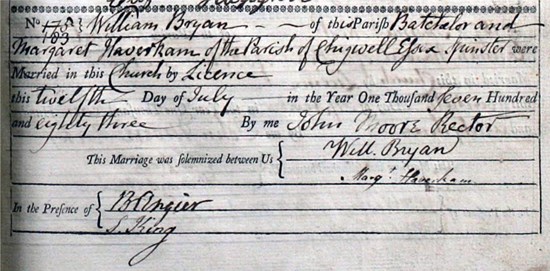 No. William Bryan of this Parish Batchelor and
Margaret Haverham of the Parish of Chigwell Essex Spinster were
Married in this Church by Licence
this twelfth Day of July in the Year One Thousand Seven Hundred
and eighty three By me John Moore Rector
This Marriage was solemnized between Us { Will. Bryan
Margt Haverham
In the Presence of {
S. King